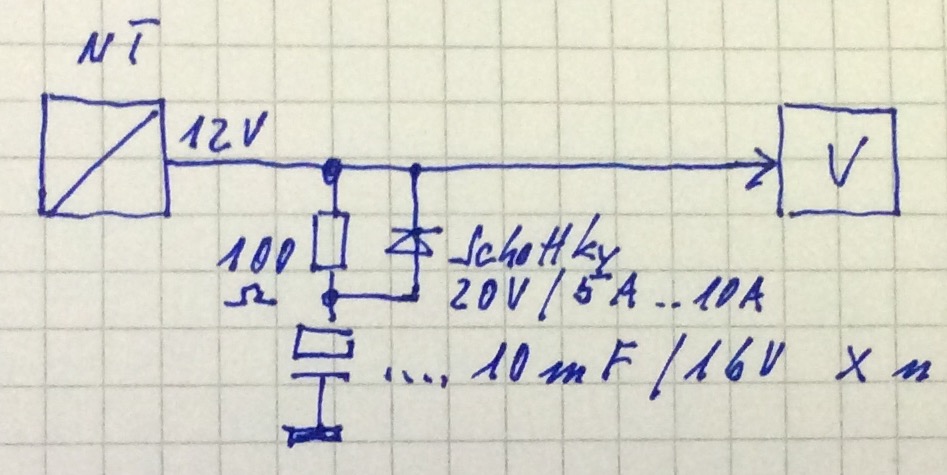 NT
12V
V
100
Ω
Schottky
20V/5A..10A
.... 10mF/16V x n